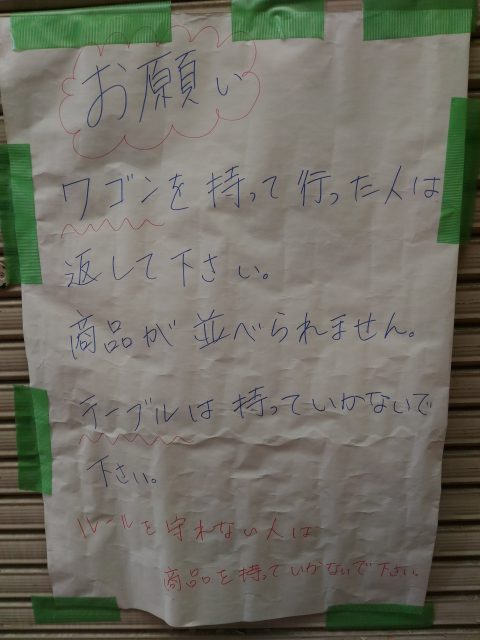 お願い
ワゴンを持って行った人は
返して下さい。
商品が並べられません。
テーブルは持っていかないで
下さい。
ルールを守れない人は
商品を持っていかないで下さい。